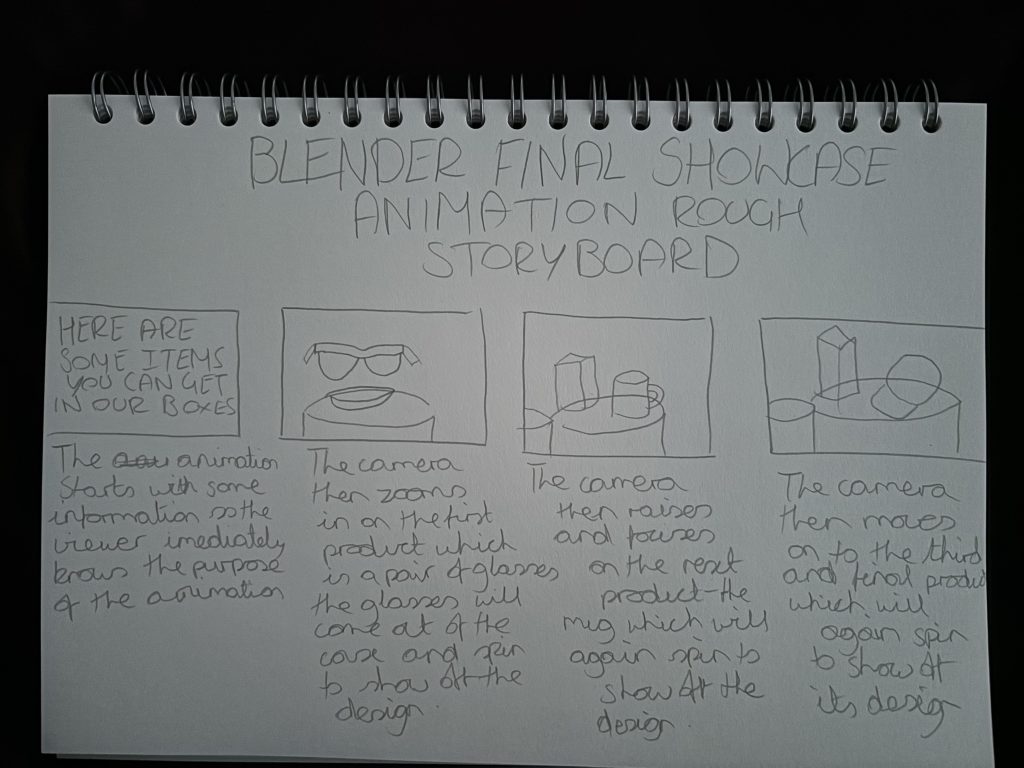 BLENDER FINAL SHOWCASE
ANIMATION ROUGH
STORYBOARD
HERE ARE
SOME ITEMS
YOU CAN GET
IN OUR BOXES
The animation
starts with some
information so the
viewer imediately
knows the purpose
of the animation
The camera
then zooms
in on the first
product which
is a pair of glasses
the glasses will
come out of the
case and spin
to show off the
design.
The camera
then raises
and focuses
on the next
product-the
mug which will
again spin to
show off the
design.
The camera
then moves
on to the third
and final product
which will
again spin
to show off
its design